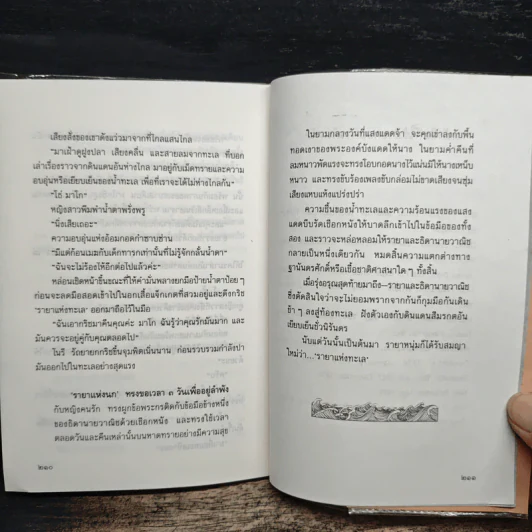 เสียงสั่งของเขาดังแว่วมาจากที่ไกลแสนไกล
“มาเฝ้าดูฝูงปลา เสียงคลื่น และสายลมจากทะเล ที่บอก
เล่าเรื่องราวจากดินแดนอันห่างไกล มาอยู่กับเม็ดทรายและความ
อบอุ่นหรือเยียบเย็นของน้ำทะเล เพื่อที่เราจะได้ไม่ห่างไกลกัน”
“โธ่ มาโก”
หญิงสาวพึมพำน้ำตาพรั่งพรู
“นิ่งเสียเถอะ”
ความอบอุ่นแห่งอ้อมกอดกำซาบซ่าน
“มีแต่ก้อนเมฆกับเด็กทารกเท่านั้นที่ไม่รู้จักกลั้นน้ำตา”
“ฉันจะไม่ร้องไห้อีกต่อไปแล้วค่ะ”
หล่อนเช็ดหน้าชื้นขณะที่ให้คำมั่นพลางยกมือป้ายน้ำตาป้อย ๆ
ก่อนจะลดมือสอดเข้าไปในอกเสื้อแจ๊กเกตที่สวมอยู่และดึงกริช
‘รายาแห่งทะเล’ ออกมาถือไว้ในมือ
“ฉันเอากริชมาคืนคุณค่ะ มาโก ฉันรู้ว่าคุณรักมันมาก และ
มันควรจะอยู่คู่กับคุณตลอดไป”
โนรี รัถยายกกริชขึ้นจุมพิตเนิ่นนาน ก่อนรวบรวมกำลังปา
มันออกไปในทะเลอย่างสุดแรง
‘รายาแห่งนก’ ทรงขอเวลา ๓ วันเพื่ออยู่ลำพัง
กับหญิงคนรัก ทรงผูกข้อพระกรติดกับข้อมือข้างหนึ่ง
ของธิดานายวาณิชด้วยเชือกหนัง และทรงใช้เวลา
ตลอดวันและคืนเหล่านั้นบนหาดทรายอย่างมีความสุข
๒๑๐
ในยามกลางวันที่แสงแดดจ้า จะคุกเข่าลงกับพื้น
ทอดเงาของพระองค์บังแดดให้นาง ในยามค่ำคืนที่
ลมหนาวพัดแรงจะทรงโอบกอดนางไว้แน่นมิให้นางเหน็บ
หนาว และทรงขับร้องเพลงขับกล่อมไม่ขาดเสียงจนซุ่ม
เสียงแหบแห้งแปร่งปร่า
ความชื้นของน้ำทะเลและความร้อนแรงของแสง
แดดบีบรัดเชือกหนังให้บาดลึกเข้าไปในข้อมือของทั้ง
สอง และราวจะหล่อหลอมให้รายาและธิดานายวาณิช
กลายเป็นหนึ่งเดียวกัน หมดสิ้นความแตกต่างทาง
ฐานันดรศักดิ์หรือเชื้อชาติศาสนาใด ๆ ทั้งสิ้น
เมื่อรุ่งอรุณสุดท้ายมาถึง—รายาและธิดานายวาณิช
ซึ่งตัดสินใจว่าจะไม่ยอมพรากจากกันก็กุมมือกันเดิน
ช้า ๆ ลงสู่ท้องทะเล ฝังตัวเองกับดินแดนสีมรกตอัน
เยียบเย็นชั่วนิรันดร
นับแต่วันนั้นเป็นต้นมา รายาหนุ่มก็ได้รับสมญา
ใหม่ว่า...‘รายาแห่งทะเล’
๒๑๑